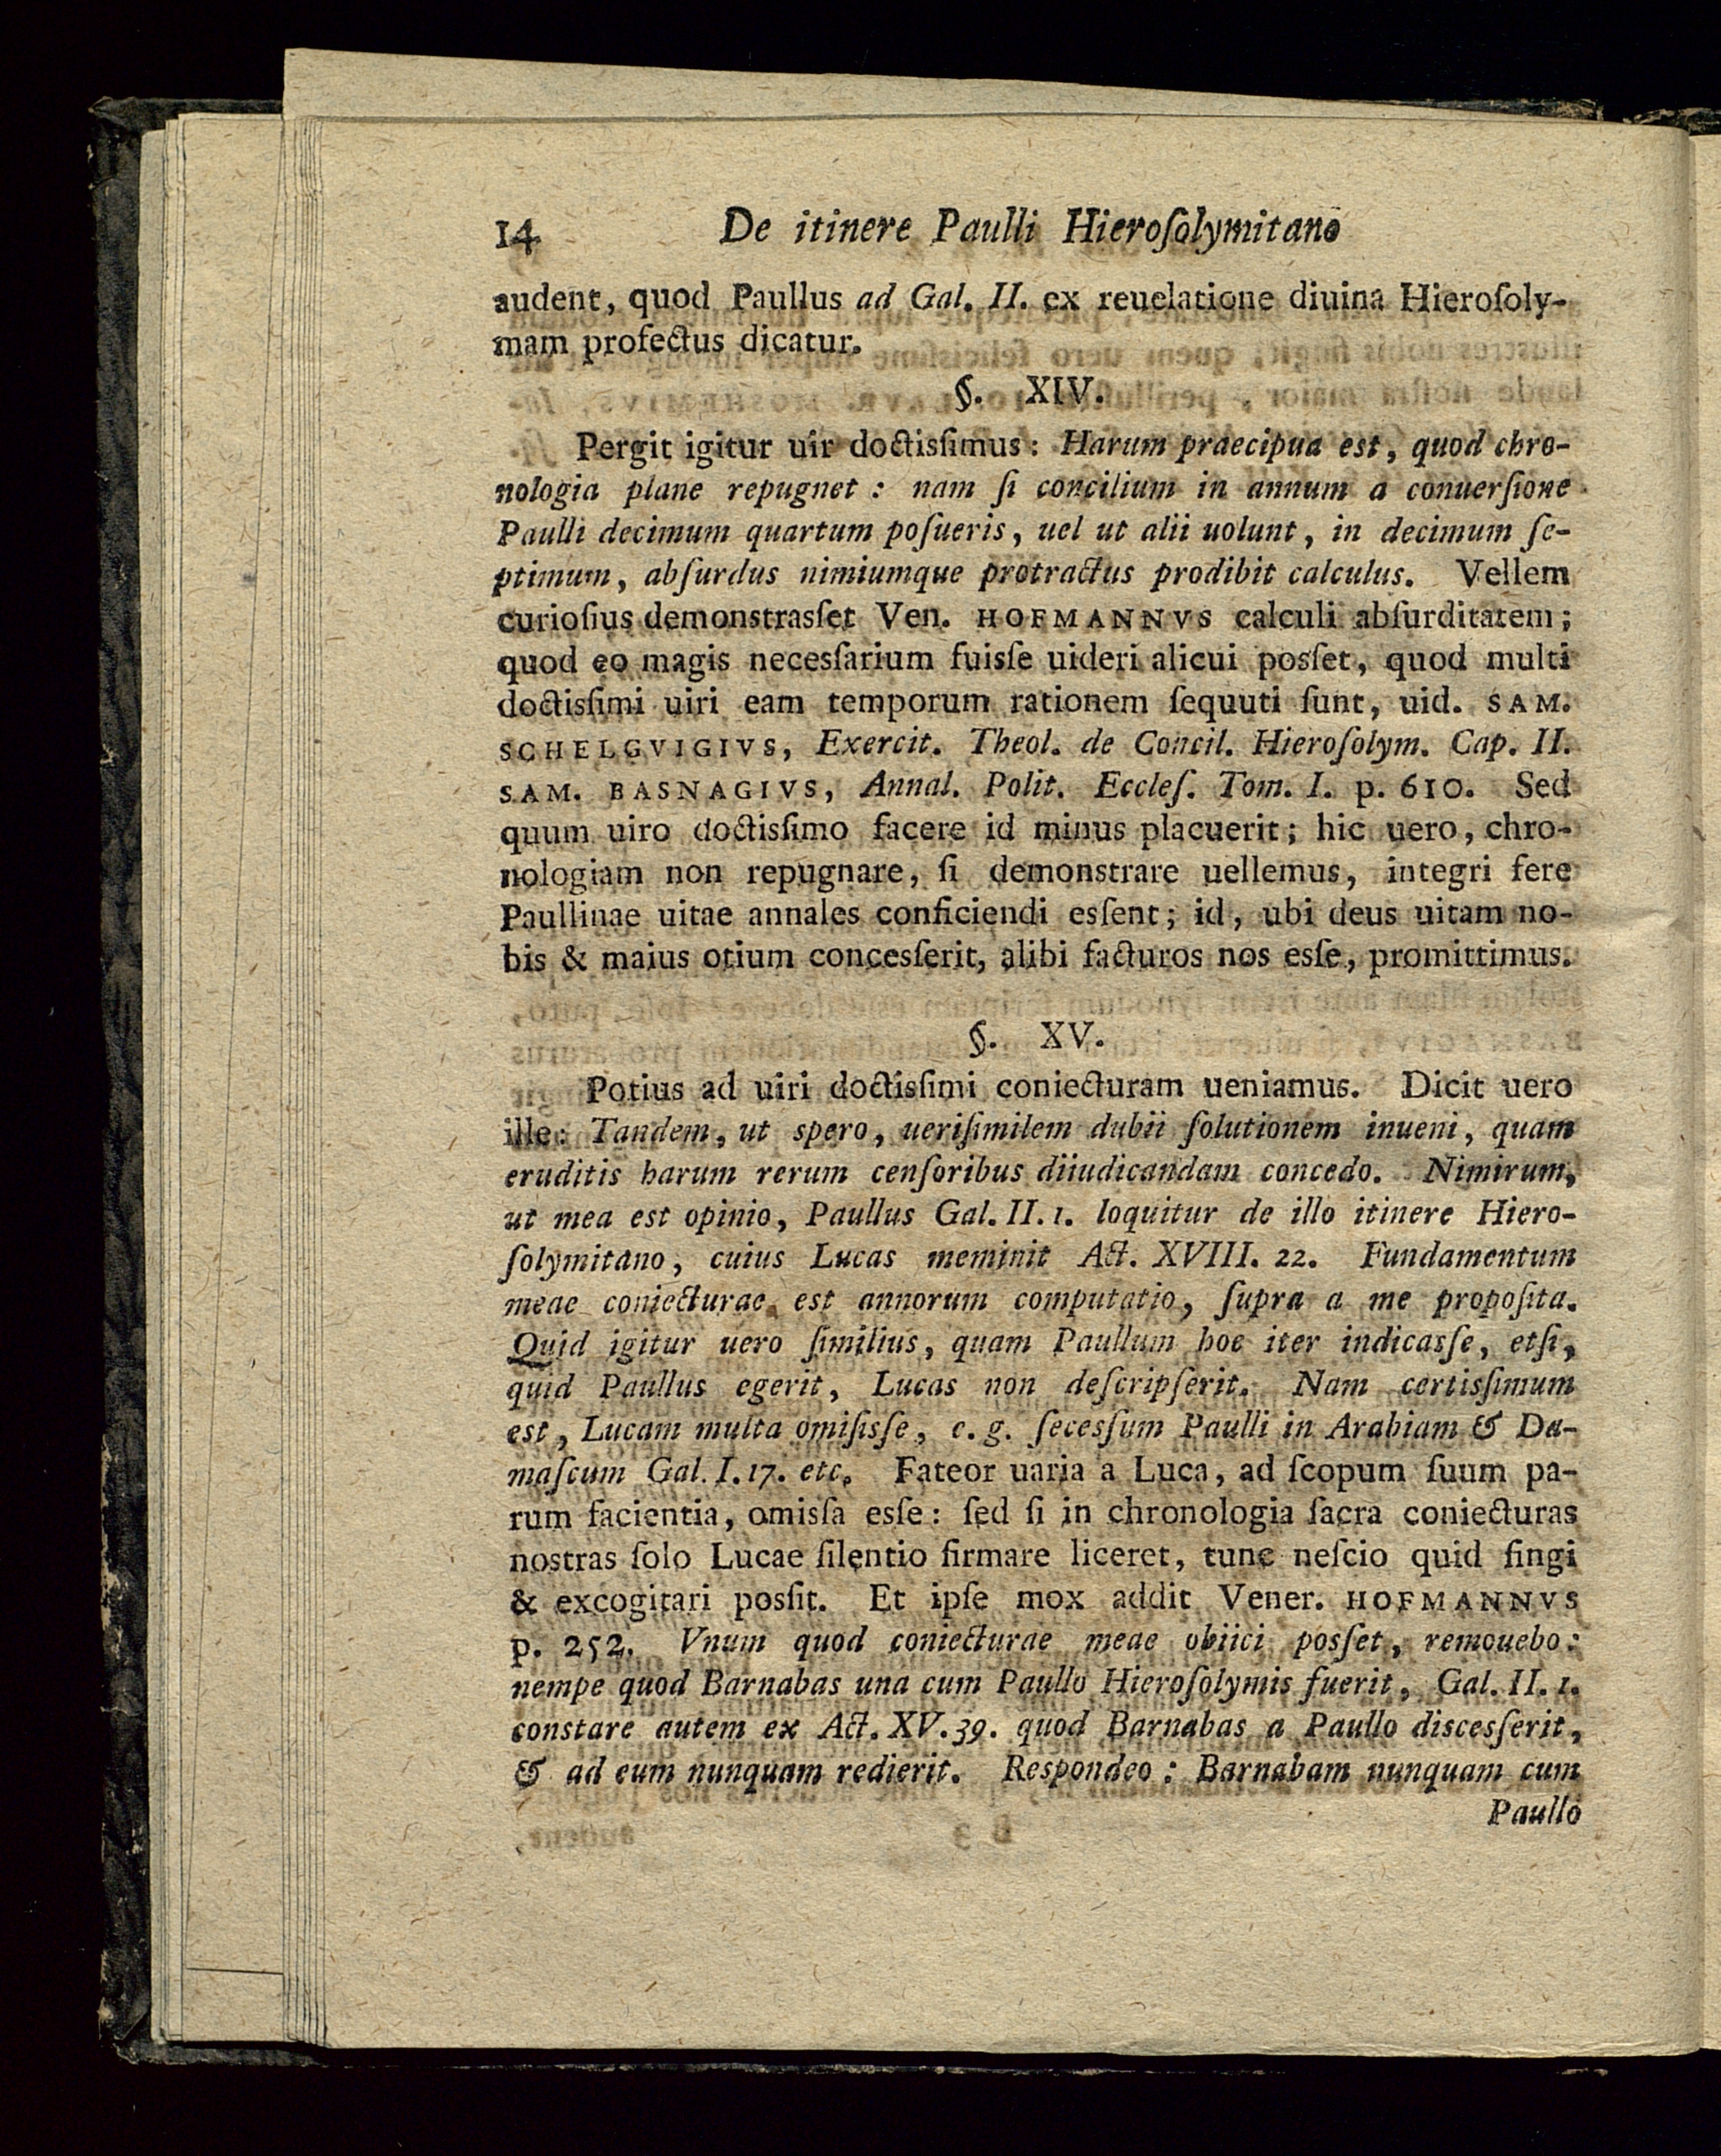 14 De itinere Paulli Hieroſolymitano
audent, quod Paullus ad Gal. II. ex reuelatione diuina Hieroſoly-
mam profectus dicatur.
§. XIV.
Pergit igitur uir doctisſimus: Harum praecipua est, quod chro-
nologia plane repugnet: nam ſi concilium in annum a conuerſione
Paulli decimum quartum poſueris, uel ut alii uolunt, in decimum ſe-
ptimum, abſurdus nimiumque protractus prodibit calculus. Vellem
curioſius demonstrasſet Ven. HOFMANNVS calculi abſurditatem;
quod eo magis necesſarium fuisſe uideri alicui posſet, quod multi
doctisſimi uiri eam temporum rationem ſequuti ſunt, uid. SAM.
SCHELGVIGIVS, Exercit. Theol. de Concil. Hieroſolym. Cap. II.
SAM. BASNAGIVS, Annal. Polit. Eccleſ. Tom. I. p. 610. Sed
quum uiro doctisſimo facere id minus placuerit; hic uero, chro-
nologiam non repugnare, ſi demonstrare uellemus, integri fere
Paullinae uitae annales conficiendi esſent; id, ubi deus uitam no-
bis & maius otium concesſerit, alibi facturos nos esſe, promittimus.
§. XV.
Potius ad uiri doctisſimi coniecturam ueniamus. Dicit uero
ille: Tandem, ut spero, ueriſimilem dubii ſolutionem inueni, quam
eruditis harum rerum cenſoribus diiudicandam concedo. Nimirum,
ut mea est opinio, Paullus Gal. II. 1. loquitur de illo itinere Hiero-
ſolymitano, cuius Lucas meminit Act. XVIII. 22. Fundamentum
meae coniecturae est annorum computatio, ſupra a me propoſita.
Quid igitur uero ſimilius, quam Paullum hoc iter indicasſe, etſi,
quid Paullus egerit, Lucas non deſcripſerit. Nam certisſimum
est, Lucam multa omiſisſe, e. g. ſecesſum Paulli in Arabiam & Da-
maſcum Gal. I. 17. etc. Fateor uaria a Luca, ad ſcopum ſuum pa-
rum facientia, omisſa esſe: ſed ſi in chronologia ſacra coniecturas
nostras ſolo Lucae ſilentio firmare liceret, tunc neſcio quid fingi
& excogitari posſit. Et ipſe mox addit Vener. HOFMANNVS
p. 252. Vnum quod coniecturae meae obiici posſet, remouebo:
nempe quod Barnabas una cum Paullo Hieroſolymis fuerit, Gal. II. 1.
constare autem ex Act. XV. 39. quod Barnabas a Paullo discesſerit,
& ad eum nunquam redierit. Respondeo: Barnabam nunquam cum
Paullo